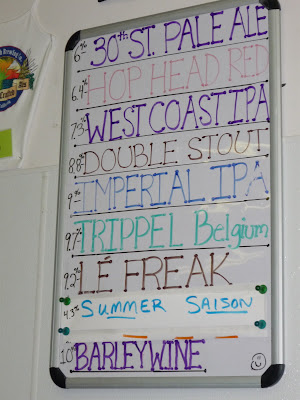 6% 30th ST. PALE ALE
6.4% HOP HEAD RED
7.3% WEST COAST IPA
8.8% DOUBLE STOUT
9% IMPERIAL IPA
9.7% TRIPPEL Belgium
9.2% LÉ FREAK
4.3% SUMMER SAISON
10% BARLEYWINE